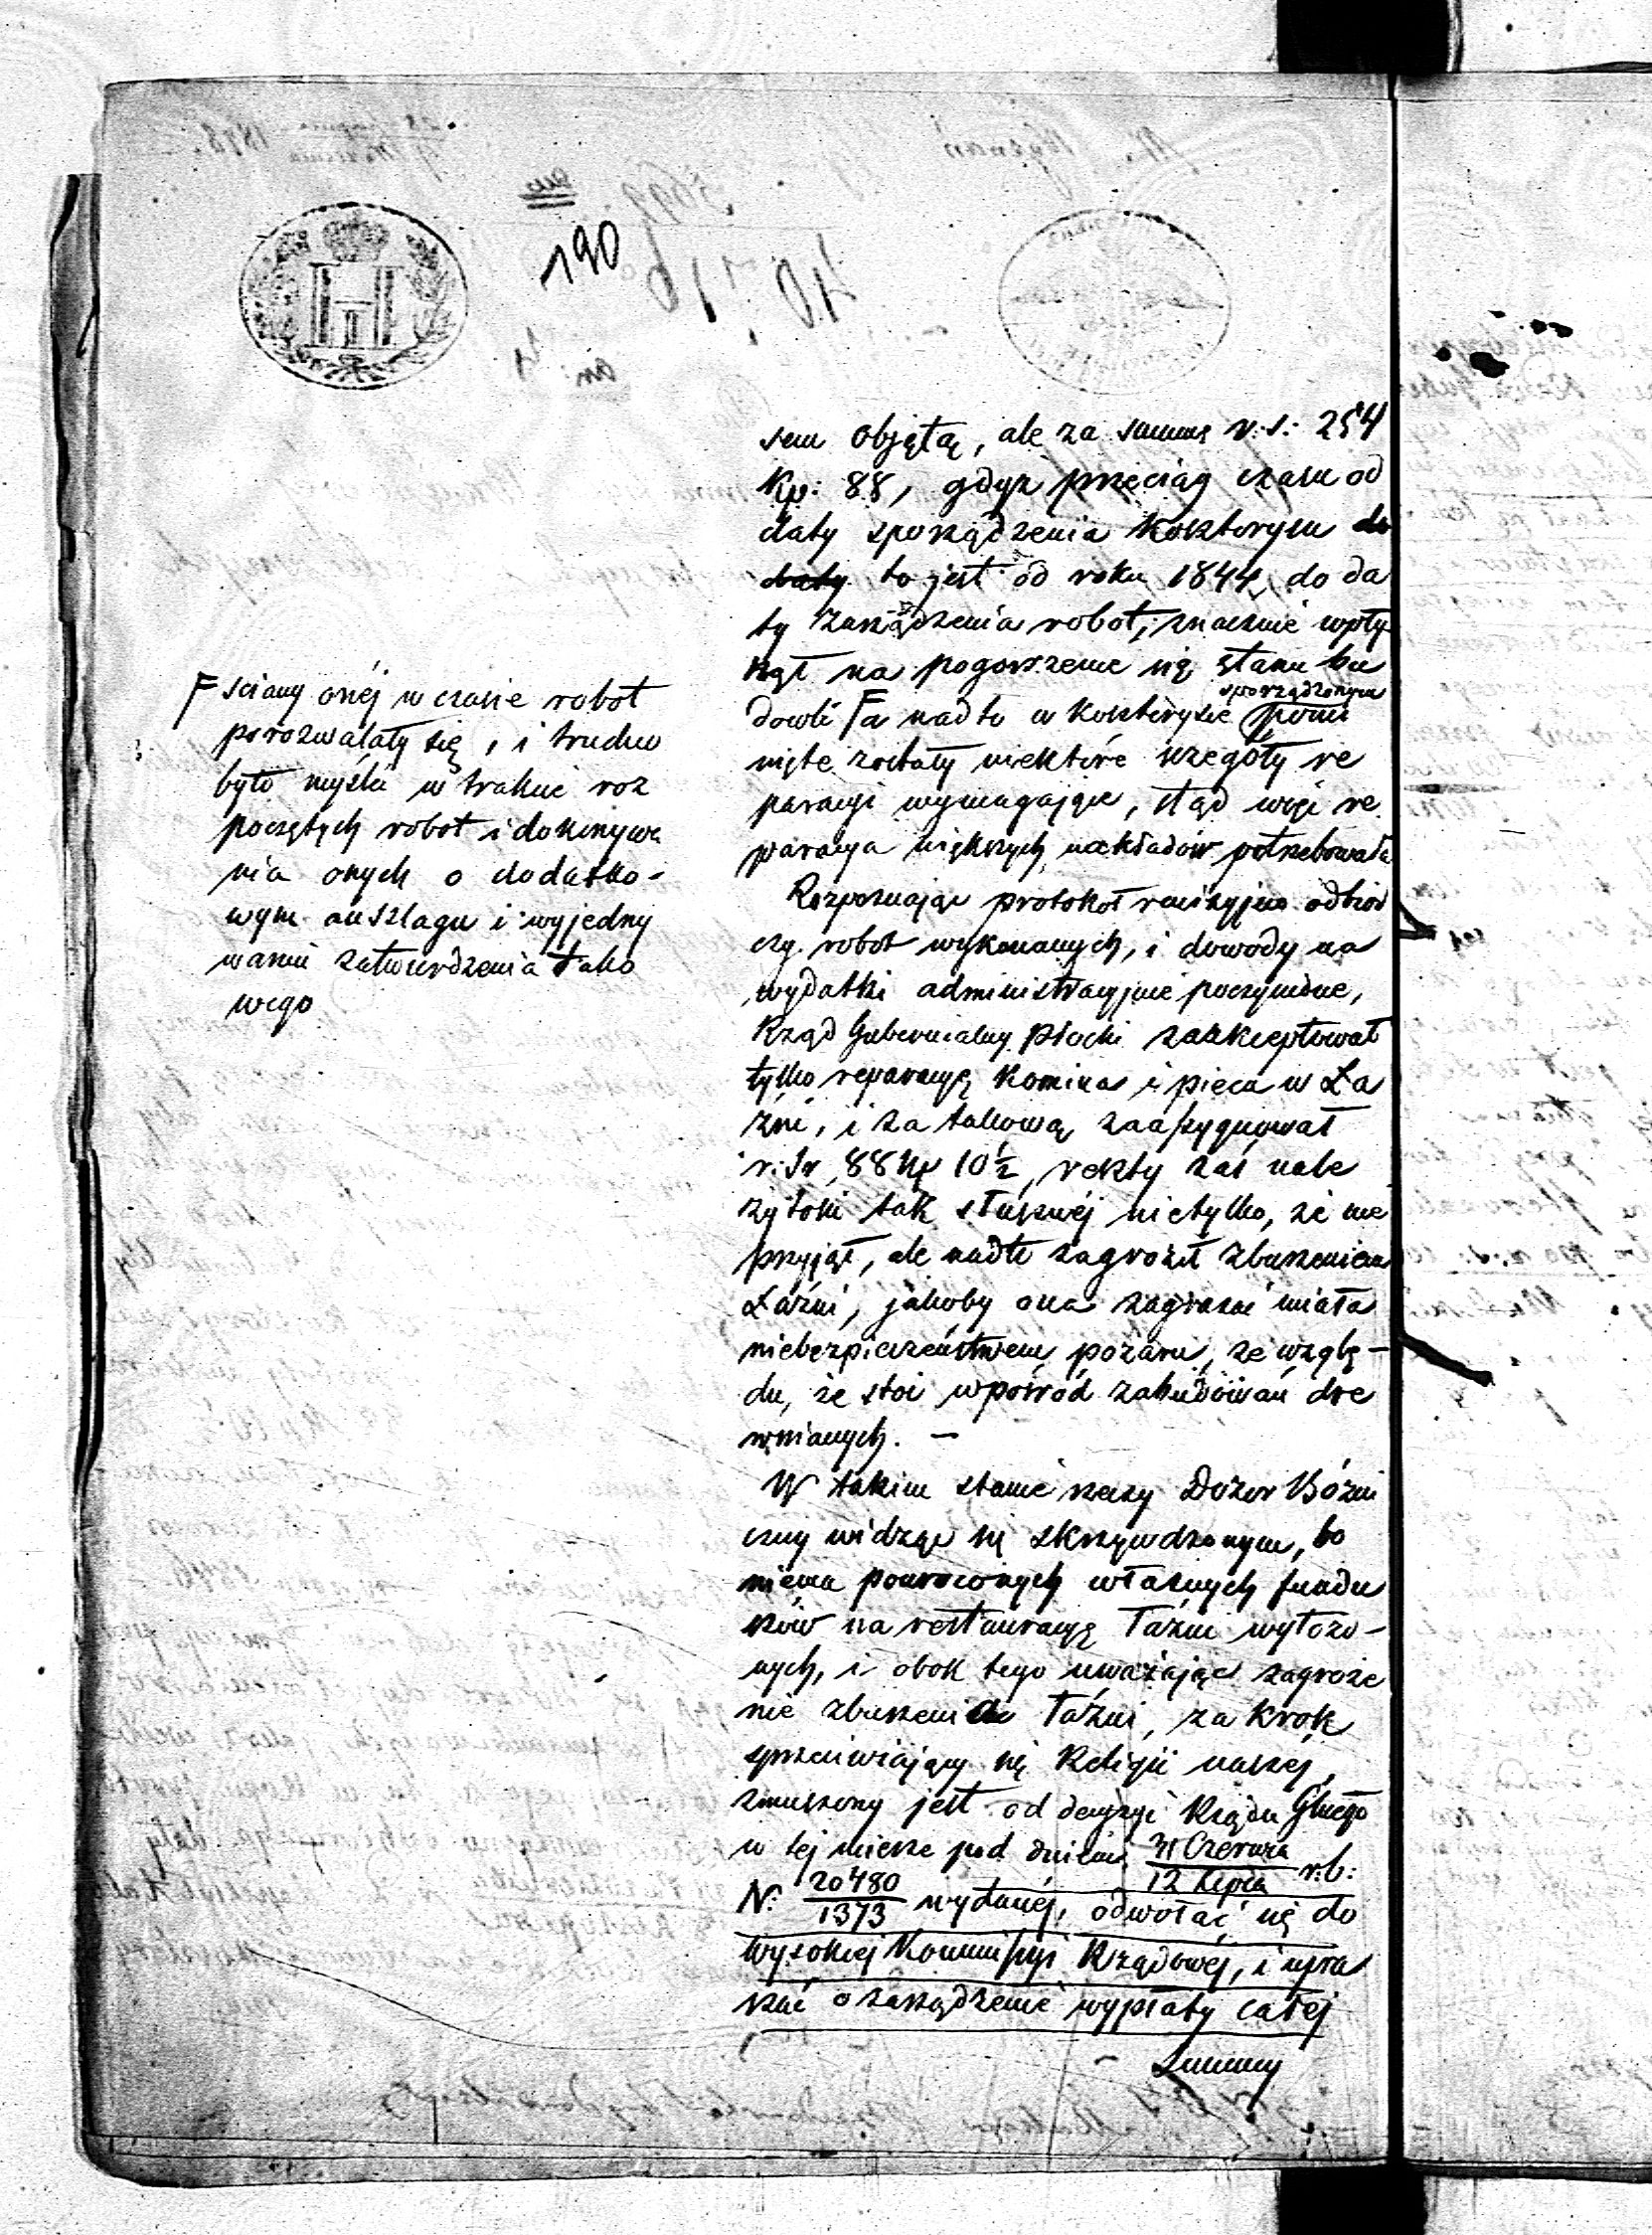 190
sem objętą, ale za summę r: s: 254
kp: 88, gdyż przeciąg czasu od
daty sporządzenia kosztorysu do
daty to jest od roku 1844 do da
ty zarządzenia robot, znacznie wpły
nął na pogorszenie się stanu bu
dowli F a nadto w kosztorysie sporządzonym pomi
nięte zostały niektóre szczegóły re
paracyi wymagające, stąd więc re
paracya większych nakładów potrzebowała
Rozpoznając protokół rewizyjno odbior
czy robot wykonanych, i dowody na
wydatki administracyjnie poczynione,
Rząd Gubernialny Płocki zaakceptował
tylko reparacyę komina i pieca w Ła
źni, i za takową zaassygnował
r: sr 88 kp 10½, reszty zaś nale
żytości tak słusznéj nietylko, że nie
przyjął, ale nadto zagroził zburzeniem
Łaźni, jakoby ona zagrażać miała
niebezpieczeństwem pożaru, ze wzglę-
du, że stoi wpośród zabudowań dre
wnianych. —
W takim stanie rzeczy Dozór Bóżni
czny widząc się skrzywdzonym, bo
niema powróconych własnych fundu
szów na restauracyę Łaźni wyłożo-
nych, i obok tego uważając zagroże
nie zburzenia Łaźni, za krok
sprzeciwiający się Religii naszej,
zmuszony jest od decyzyi Rządu Głnego
w tej mierze pod dniem 31 Czerwca / 12 Lipca r: b:
N: 20480 / 1373 wydanéj, odwołać się do
Wysokiej Kommissyi Rządowéj, i upra
szać o zarządzenie wypłaty całéj
Summy
F sciany onéj w czasie robot
porozwalały się, i trudno
było myśleć w trakcie roz
poczętych robot i dokonywa
nia onych o dodatko-
wym anszlagu i wyjedny
waniu zatwierdzenia tako
wego